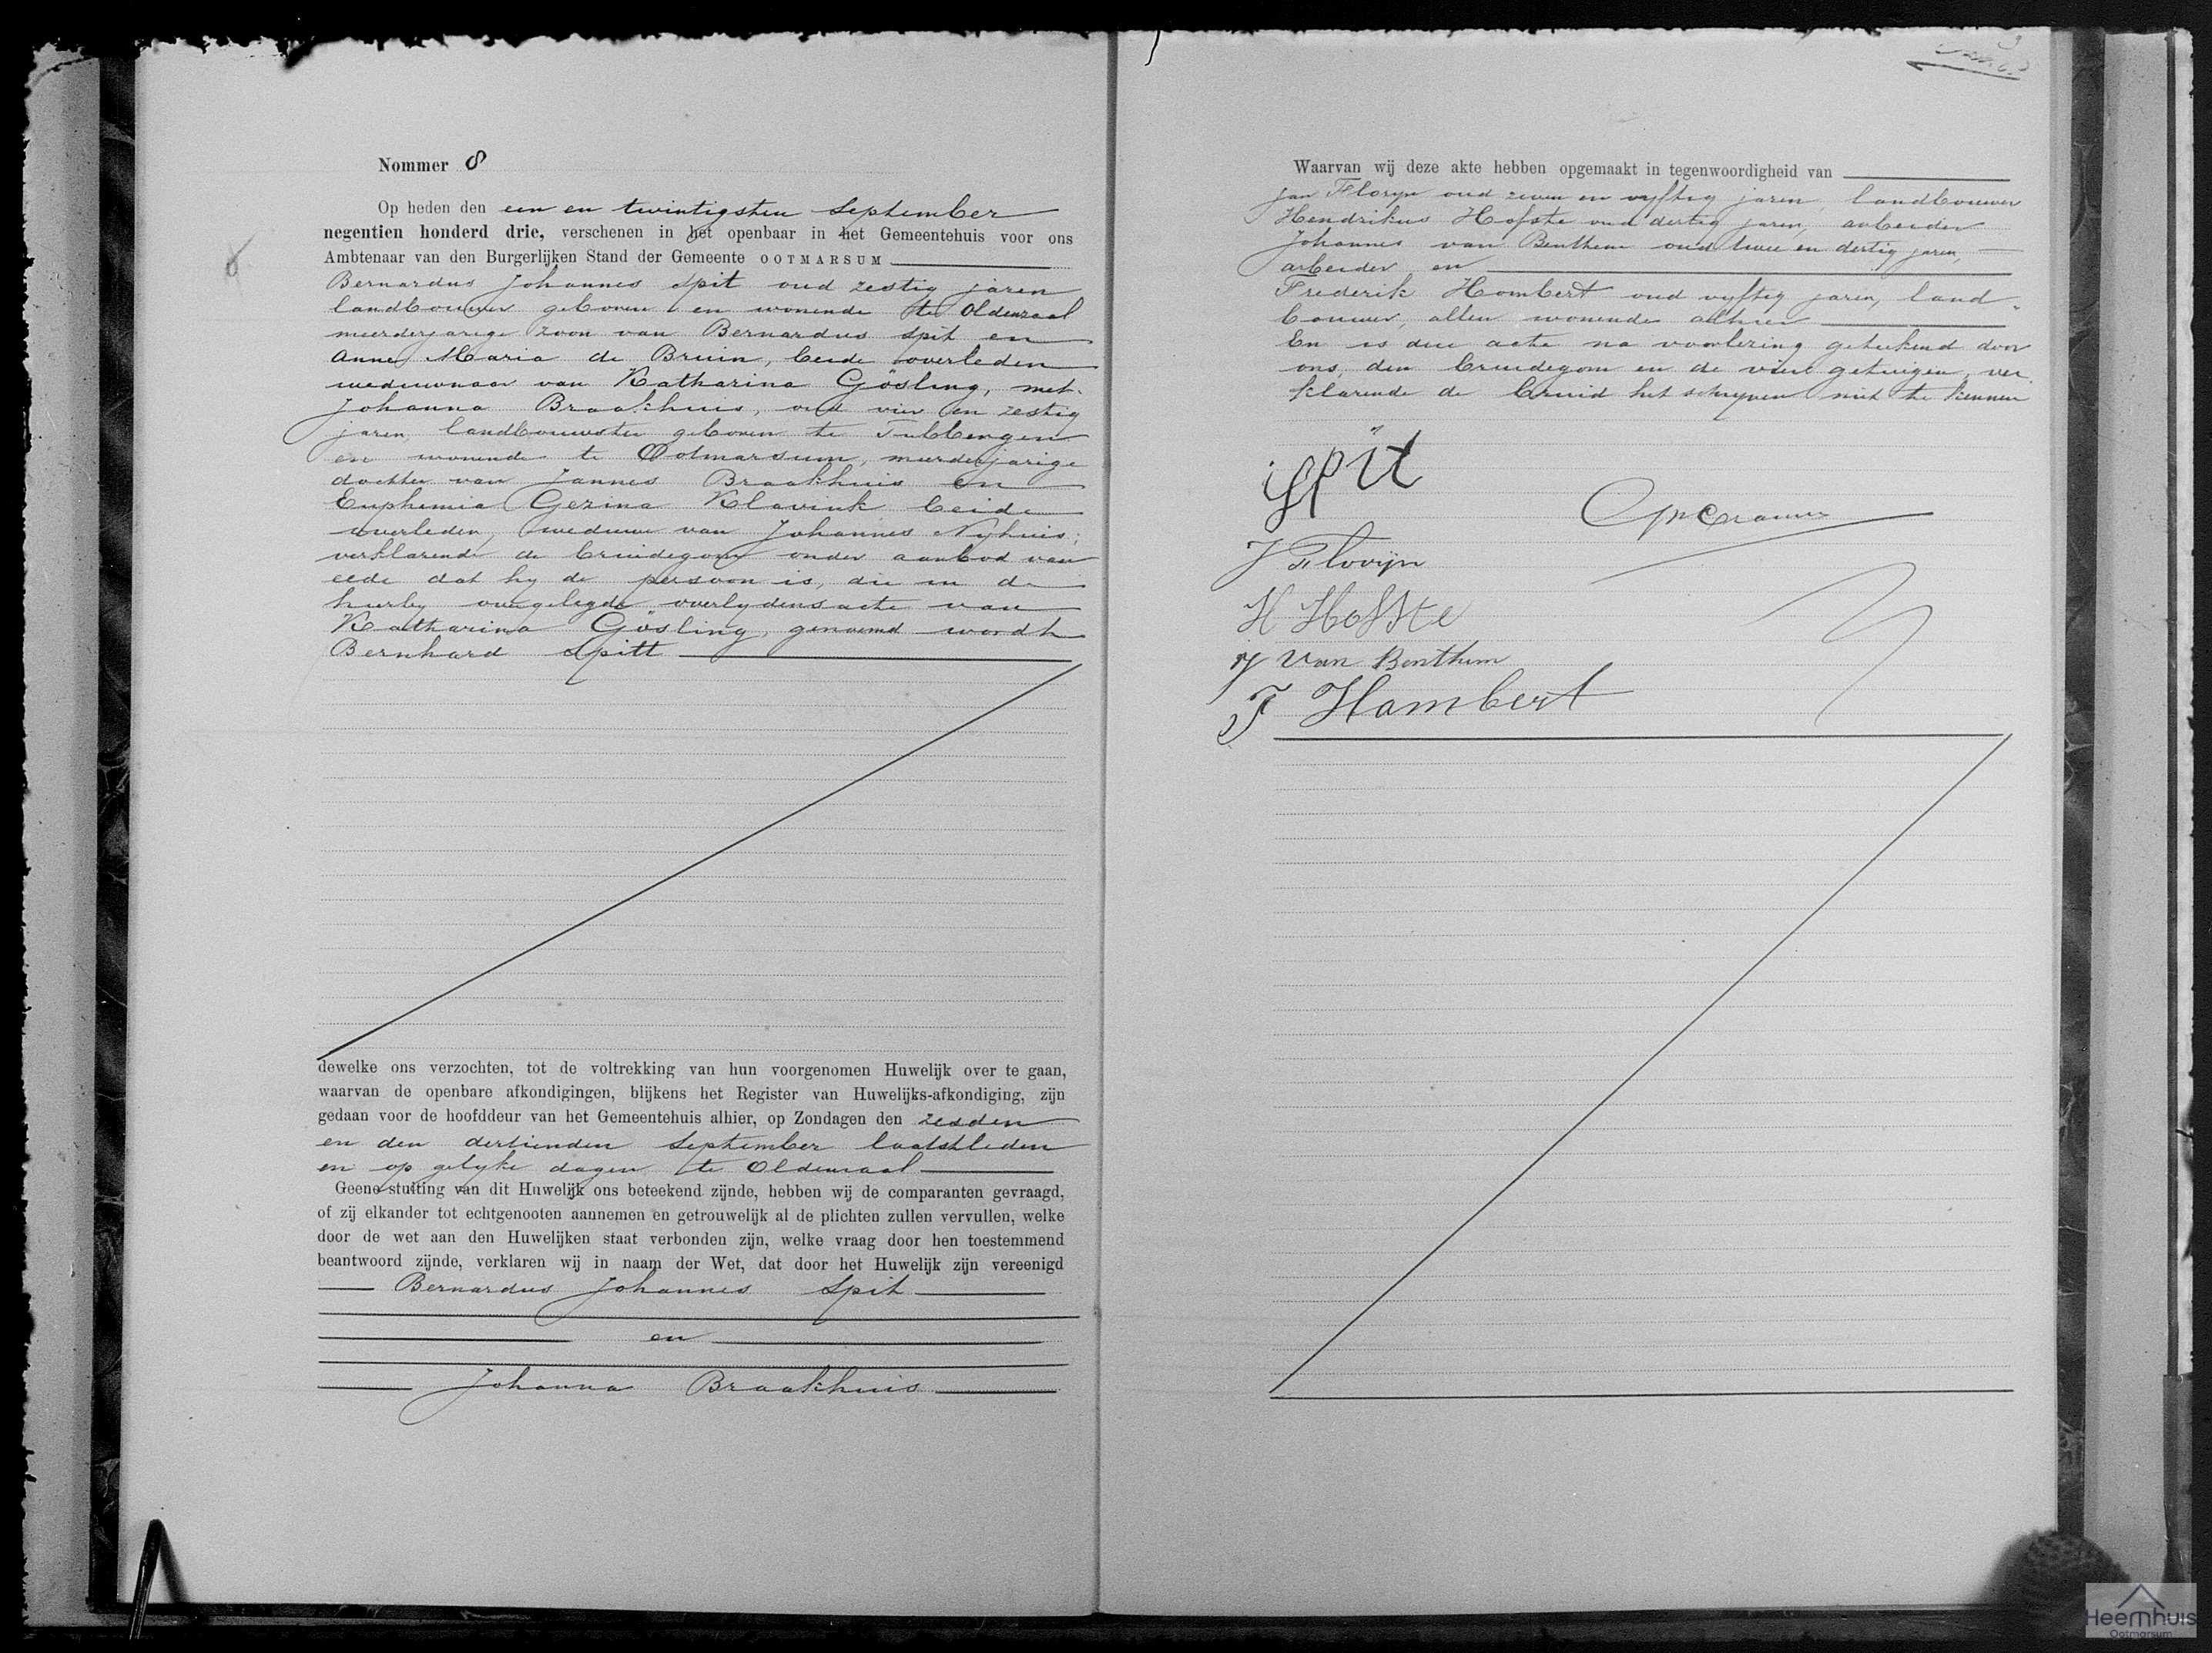 Nommer 8
Op heden den een en twintigsten September
negentien honderd drie, verschenen in het openbaar in het Gemeentehuis voor ons
Ambtenaar van den Burgerlijken Stand der Gemeente OOTMARSUM
Bernardus Johannes Spit oud zestig jaren
landbouwer geboren en wonende te Oldenzaal
meerderjarige zoon van Bernardus Spit en
Anne Maria de Bruin, beide overleden
weduwnaar van Katharina Gösling, met
Johanna Braakhuis, oud vier en zestig
jaren, landbouwster geboren te Tubbergen
en wonende te Ootmarsum, meerderjarige
dochter van Jannes Braakhuis en
Euphemia Gezina Klavink beide
overleden, weduwe van Johannes Nyhuis;
verklarende de bruidegom onder aanbod van
eede dat hy de persoon is, die in de
hierby overgelegde overlydensacte van
Katharina Gösling, genoemd wordt
Bernhard Spitt
dewelke ons verzochten, tot de voltrekking van hun voorgenomen Huwelijk over te gaan,
waarvan de openbare afkondigingen, blijkens het Register van Huwelijks-afkondiging, zijn
gedaan voor de hoofddeur van het Gemeentehuis alhier, op Zondagen den zesden
en den dertienden September laatstleden
en op gelyke dagen te Oldenzaal
Geene stuiting van dit Huwelijk ons beteekend zijnde, hebben wij de comparanten gevraagd,
of zij elkander tot echtgenooten aannemen en getrouwelijk al de plichten zullen vervullen, welke
door de wet aan den Huwelijken staat verbonden zijn, welke vraag door hen toestemmend
beantwoord zijnde, verklaren wij in naam der Wet, dat door het Huwelijk zijn vereenigd
Bernardus Johannes Spit
en
Johanna Braakhuis
Waarvan wij deze akte hebben opgemaakt in tegenwoordigheid van
Jan Floryn oud zeven en vyftig jaren landbouwer
Hendrikus Hofste oud dertig jaren, arbeider
Johannes van Benthem oud twee en dertig jaren,
arbeider en
Frederik Hombert oud vyftig jaren, land-
bouwer, allen wonende alhier
En is deze acte na voorlezing geteekend door
ons, den bruidegom en de vier getuigen, ver
klarende de bruid het schryven niet te kennen
Spit
J Florijn
H Hofste
J van Benthem
F Hambert
Heemhuis
Ootmarsum